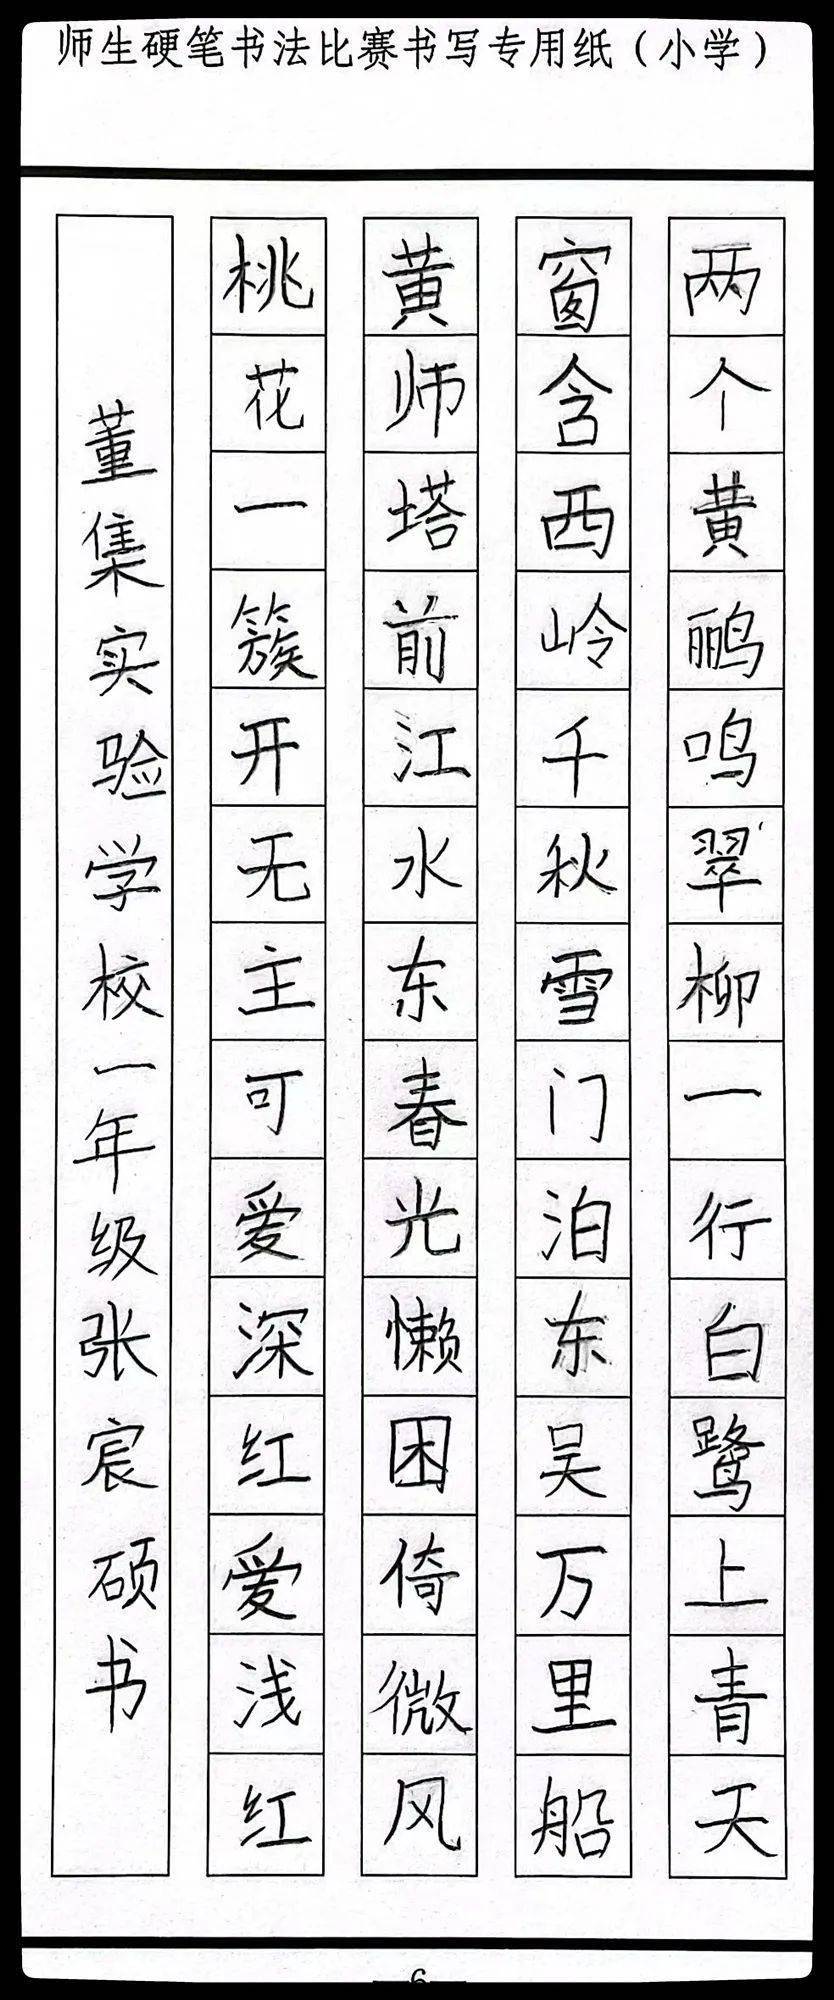 师生硬笔书法比赛书写专用纸（小学）
两个黄鹂鸣翠柳一行白鹭上青天
窗含西岭千秋雪门泊东吴万里船
黄师塔前江水东春光懒困倚微风
桃花一簇开无主可爱深红爱浅红
董集实验学校一年级张宸硕书
—6—